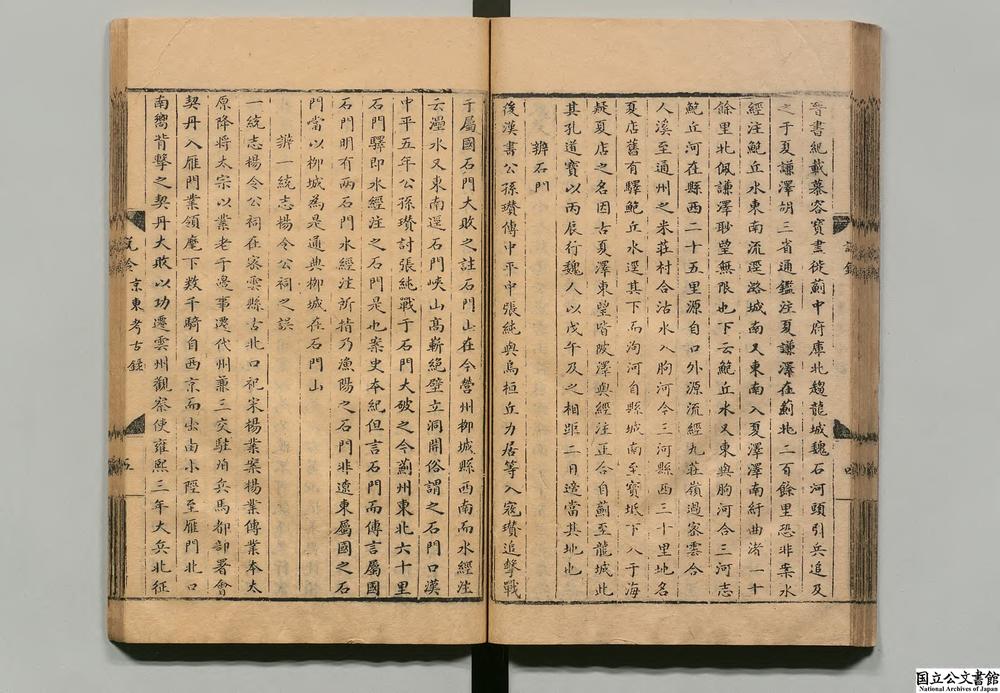 晉書紀載慕容寶盡從薊中府庫北趨龍城魏石河頭引兵追及
之于夏謙澤胡三省通鑑注夏謙澤在薊北二百餘里恐非案水
經注鮑丘水東南流逕潞城南又東南入夏澤澤南紆曲渚一十
餘里北佩謙澤眇望無限也下云鮑丘水又東與朐河合三河志
鮑丘河在縣西二十五里源自口外源流經九莊嶺過密雲合
人溪至通州之米莊村合沽水入朐河今三河縣西三十里地名
夏店舊有驛鮑丘水逕其下而泃河自縣城南至寶坻下八于海
疑夏店之名因古夏澤東望皆陂澤與經注正合自薊至龍城此
其孔道寶以丙辰行魏人以戊午及之相距二日適當其地也
辨石門
後漢書公孫瓚傳中平中張純與烏桓丘力居等入寇瓚追擊戰
于屬國石門大敗之註石門山在今營州柳城縣西南而水經注
云灅水又東南逕石門峽山高嶄絕壁立洞開俗謂之石門口漢
中平五年公孫瓚討張純戰于石門大破之今薊州東北六十里
石門驛即水經注之石門是也案史本紀但言石門而傳言屬國
石門明有兩石門水經注所指乃漁陽之石門非遼東屬國之石
門當以柳城為是通典柳城在石門山
辨一統志楊令公祠之誤
一統志楊令公祠在密雲縣古北口祀宋楊業案楊業傳業本太
原降將太宗以業老于邊事遷代州兼三交駐泊兵馬都部署會
契丹入雁門業領麾下數千騎自西京而出由小陘至雁門北口
南嚮背擊之契丹大敗以功遷雲州觀察使雍熙三年大兵北征
說鈴
京東考古錄
五
国立公文書館
National Archives of Japan